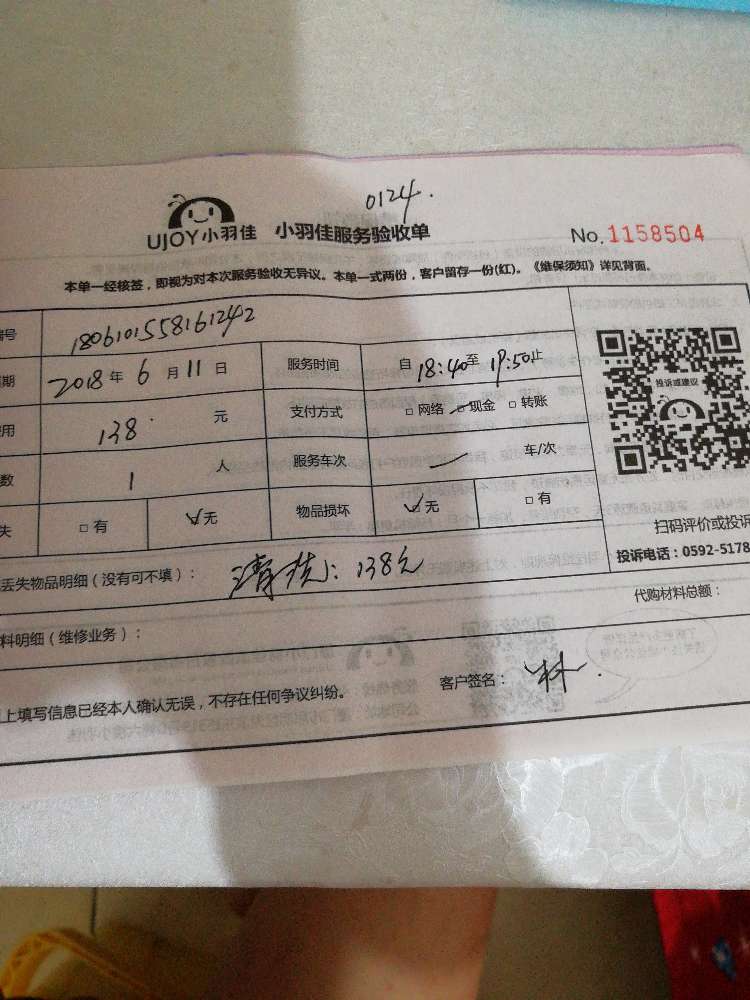 0124.
UJOY小羽佳 小羽佳服务验收单 No.1158504
本单一经核签，即视为对本次服务验收无异议。本单一式两份，客户留存一份(红)。《维保须知》详见背面。
编号 1806101558161242
期 2018 年 6 月 11 日 服务时间 自 18:40 至 19:50 止
用 138 元 支付方式 □ 网络 □ 现金 □ 转账
数 1 人 服务车次 车/次
失 □ 有 √无 物品损坏 √无 □ 有
投诉或建议
扫码评价或投诉
投诉电话：0592-5178
丢失物品明细（没有可不填）： 清洗：138元
料明细（维修业务）： 代购材料总额：
上填写信息已经本人确认无误，不存在任何争议纠纷。 客户签名： 林.